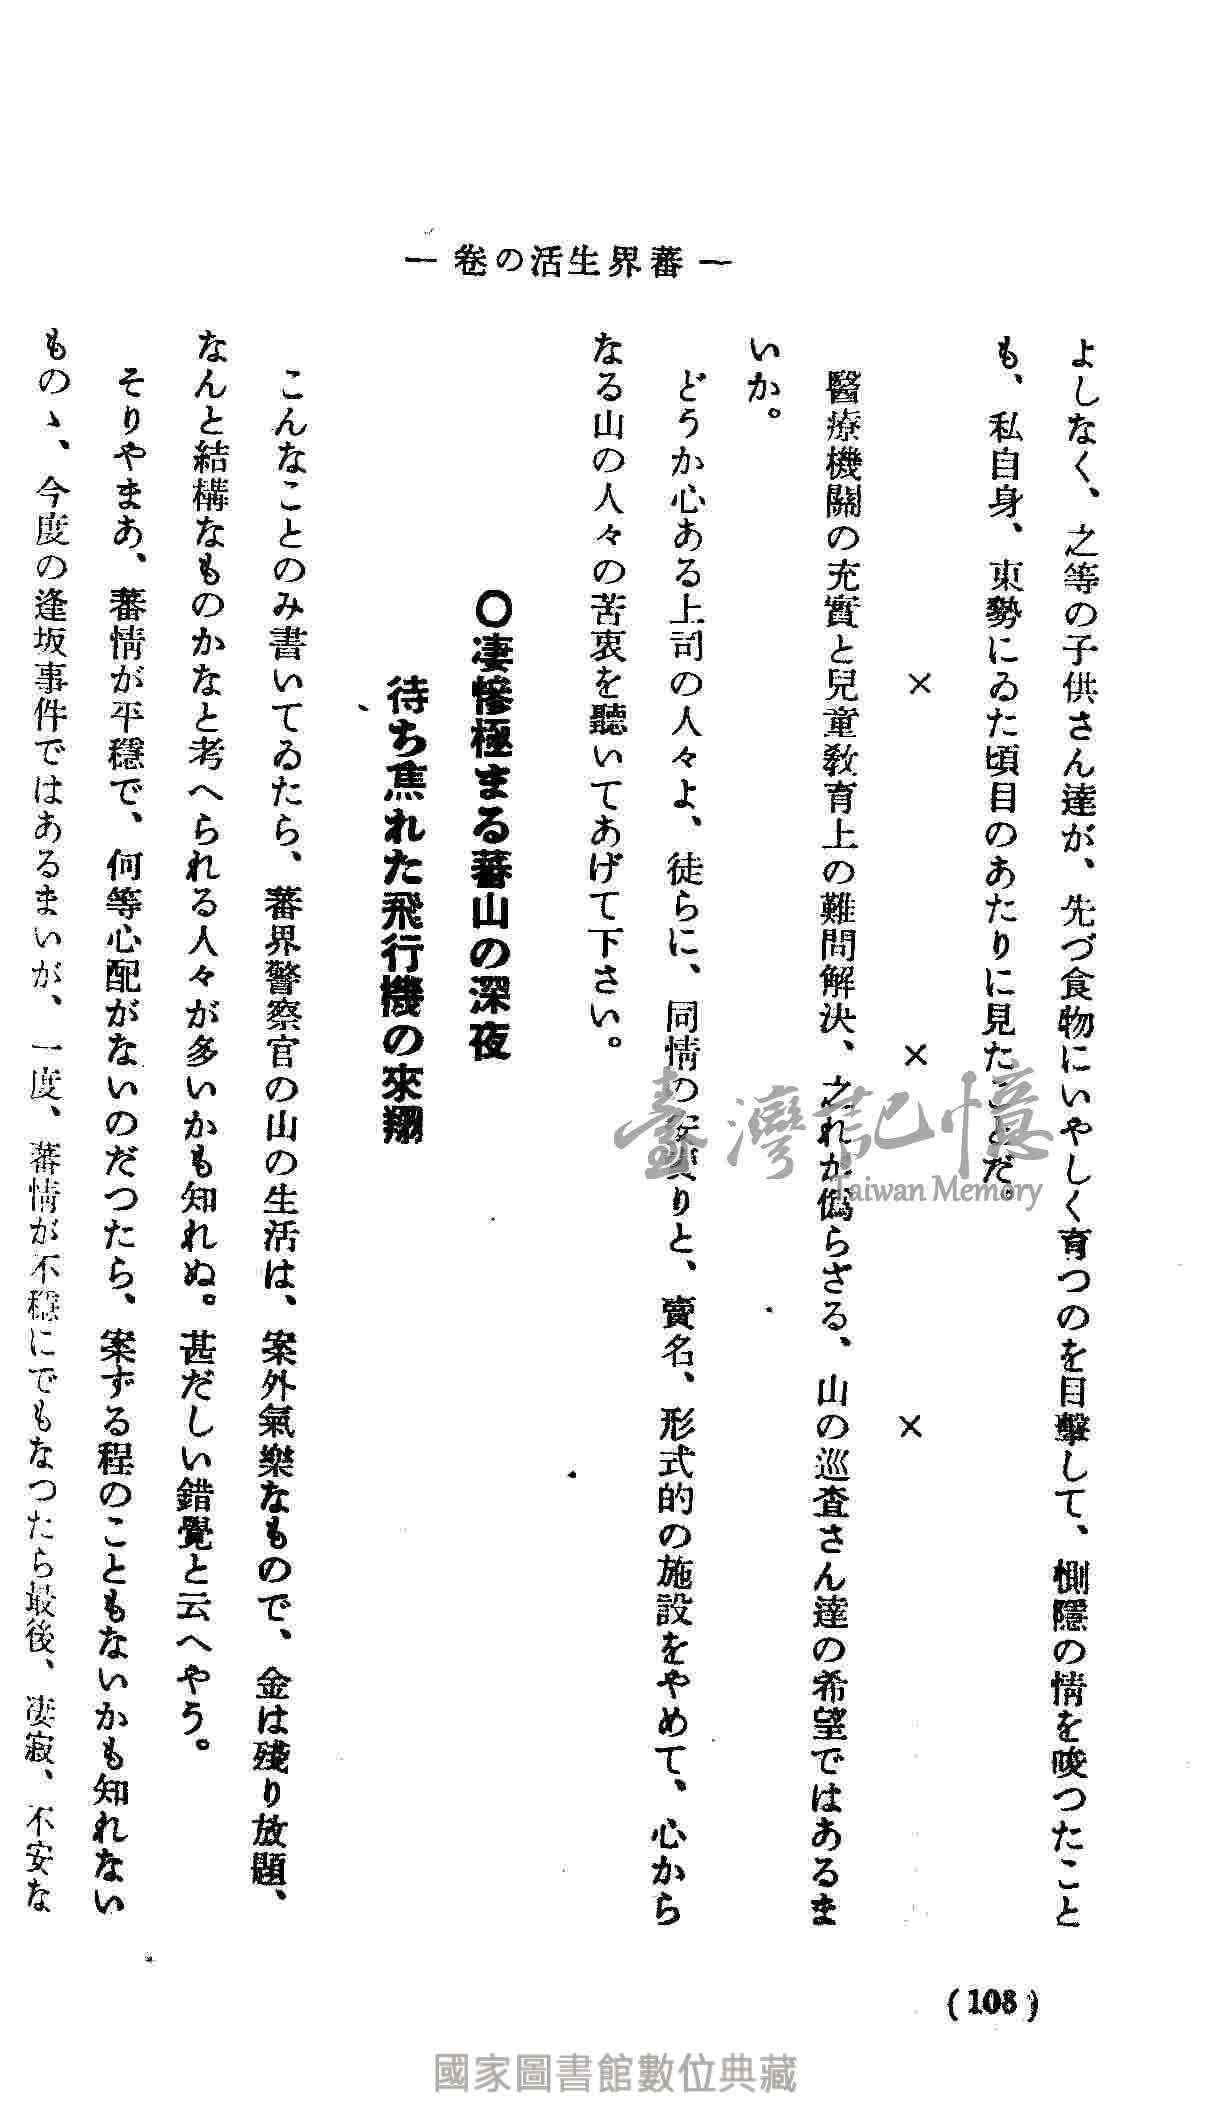 — 蕃界生活の卷 —
よしなく、之等の子供さん達が、先づ食物にいやしく育つのを目擊して、惻隱の情を唆つたこと
も、私自身、東勢にゐた頃目のあたりに見たことだ。
× × ×
醫療機關の充實と兒童教育上の難問解決、之れが僞らざる、山の巡査さん達の希望ではあるま
いか。
どうか心ある上司の人々よ、徒らに、同情の安賣りと、賣名、形式的の施設をやめて、心から
なる山の人々の苦衷を聽いてあげて下さい。
〇凄慘極まる蕃山の深夜
待ち焦れた飛行機の來翔
こんなことのみ書いてゐたら、蕃界警察官の山の生活は、案外氣樂なもので、金は殘り放題、
なんと結構なものかなと考へられる人々が多いかも知れぬ。甚だしい錯覺と云へやう。
そりやまあ、蕃情が平穩で、何等心配がないのだつたら、案ずる程のこともないかも知れない
ものゝ、今度の逢坂事件ではあるまいが、一度、蕃情が不穩にでもなつたら最後、凄寂、不安な
(108)
臺灣記憶
Taiwan Memory
國家圖書館數位典藏